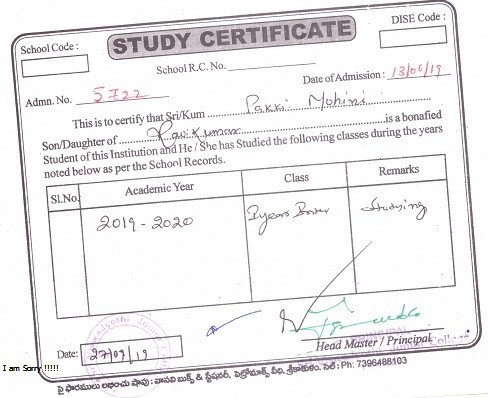 STUDY CERTIFICATE
School Code :
DISE Code :
School R.C. No.
Admn. No. 5722
Date of Admission : 13/06/19
This is to certify that Sri/Kum Pakki Mohini
Son/Daughter of Ravikumar is a bonafied
Student of this Institution and He / She has Studied the following classes during the years
noted below as per the School Records.
Sl.No. Academic Year Class Remarks
2019-2020 Studying
Date: 27/09/19
Head Master / Principal
I am Sorry !!!!!
పై ఫారములు లభించు షాపు : వాసవి బుక్స్ & స్టేషనరీ, పెట్రోమాక్స్ వీధి, శ్రీకాకుళం. సెల్ : Ph: 7396488103